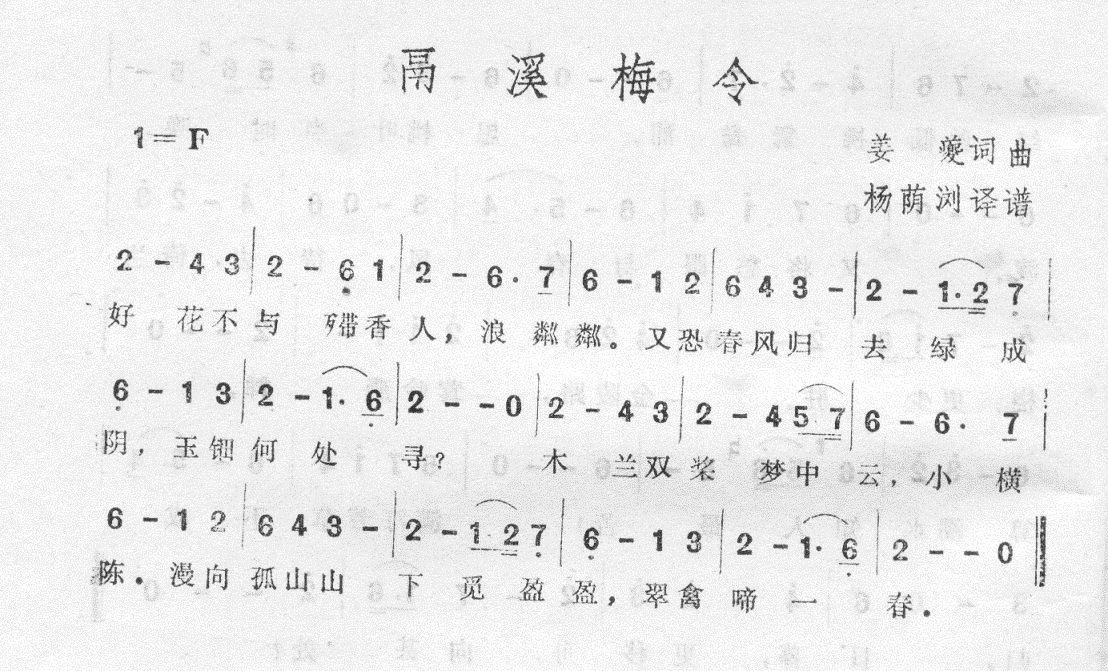 鬲溪梅令
1=F
姜夔词曲
杨荫浏译谱
2 - 4 3 | 2 - 6 1 | 2 - 6 · 7 | 6 - 1 2 | 6 4 3 - | 2 - 1 · 2 7 |
好花不与殢香人，浪粼粼。又恐春风归去绿成
6 - 1 3 | 2 - 1 · 6 | 2 - - 0 | 2 - 4 3 | 2 - 4 5 7 | 6 - 6 · 7 |
阴，玉钿何处寻？木兰双桨梦中云，小横
6 - 1 2 | 6 4 3 - | 2 - 1 · 2 7 | 6 - 1 3 | 2 - 1 · 6 | 2 - - 0 ‖
陈．漫向孤山山下觅盈盈，翠禽啼一春．